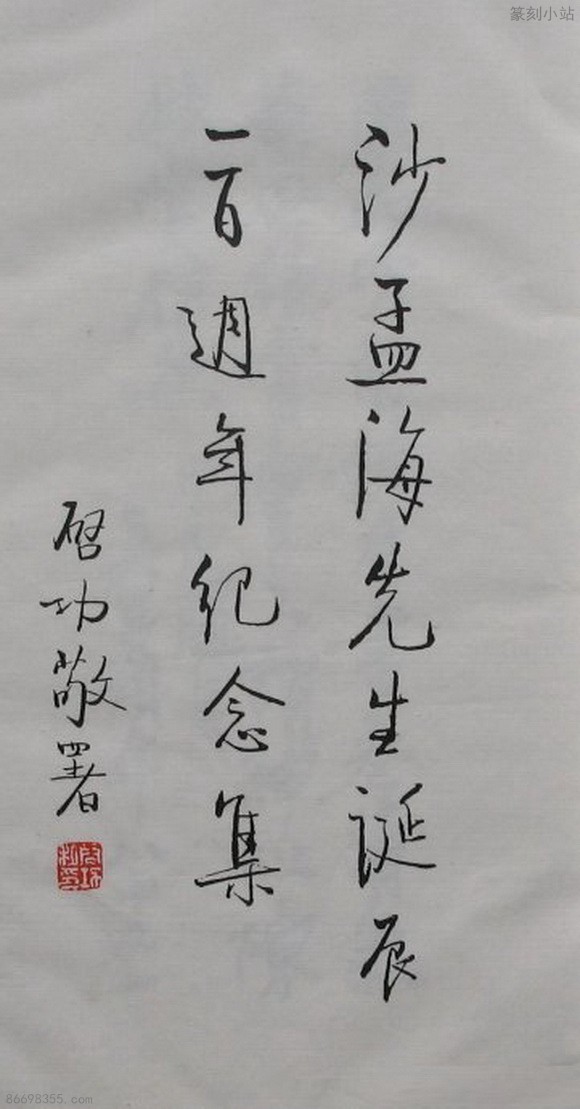 篆刻小站
沙孟海先生诞辰
一百週年纪念集
启功敬署
启功私印
86698355.com